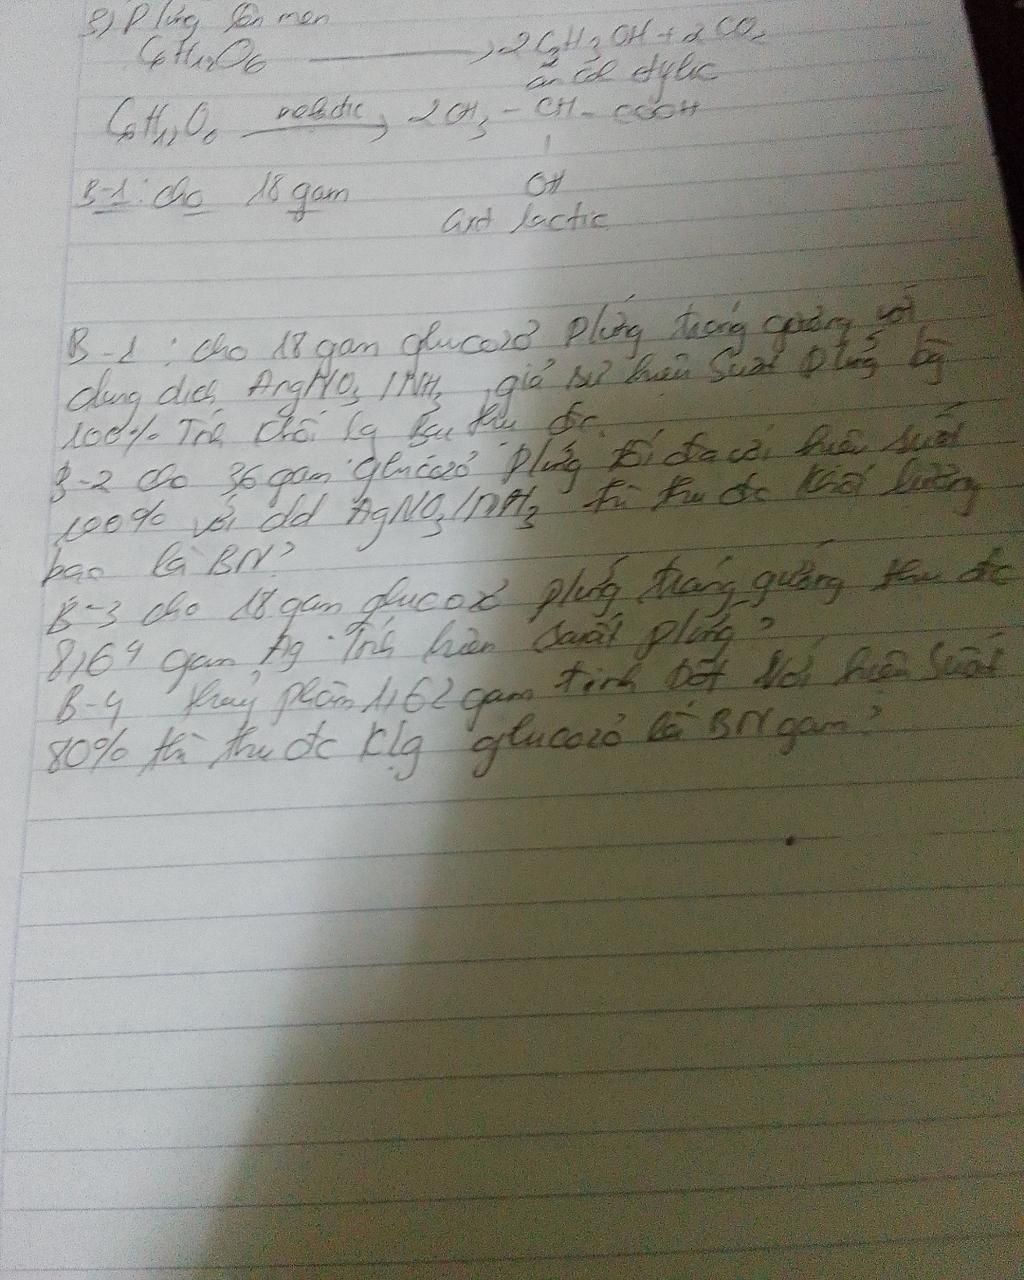 3) P lứng lên men
C6H12O6 → 2C2H5OH + 2CO2
ancol etylic
C6H12O6 → 2CH3 - CH - COOH
|
OH
B-1: cho 18 gam
axit lactic
B-1: cho 18 gam glucozơ Plứng tráng gương với
dung dịch AngNO3 /NH3, giả sử hiệu suất plứng bg
100% Tính khối lg Ag thu đc.
B-2 cho 36 gam glucozơ plứng tối đa với hiệu suất
100% với dd AgNO3/NH3 thì thu đc khối lượng
bạc là BN?
B-3 cho 18 gam glucozơ plứng tráng gương thu đc
8,64 gam Ag. Tính hiệu suất plứng?
B-4 thuỷ phân 1,62 gam tinh bột với hiệu suất
80% thì thu đc klg glucozơ là BN gam?